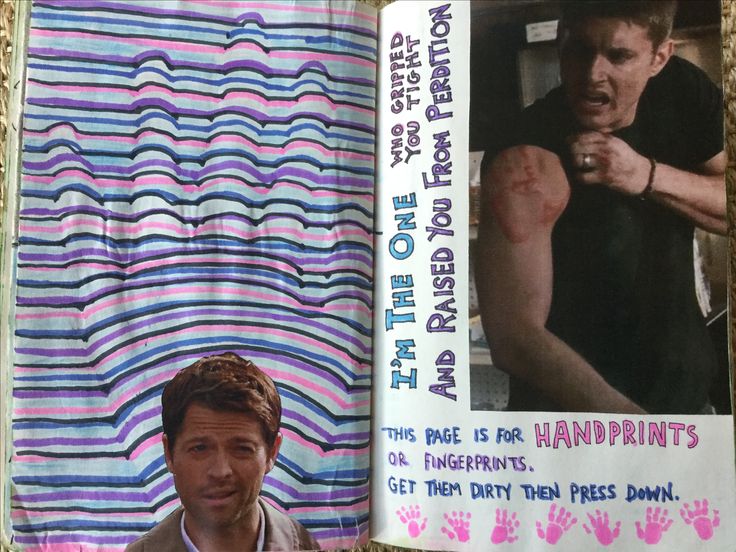 I'M THE ONE
WHO GRIPPED
YOU TIGHT
AND RAISED YOU FROM PERDITION
THIS PAGE IS FOR HANDPRINTS
OR FINGERPRINTS.
GET THEM DIRTY THEN PRESS DOWN.